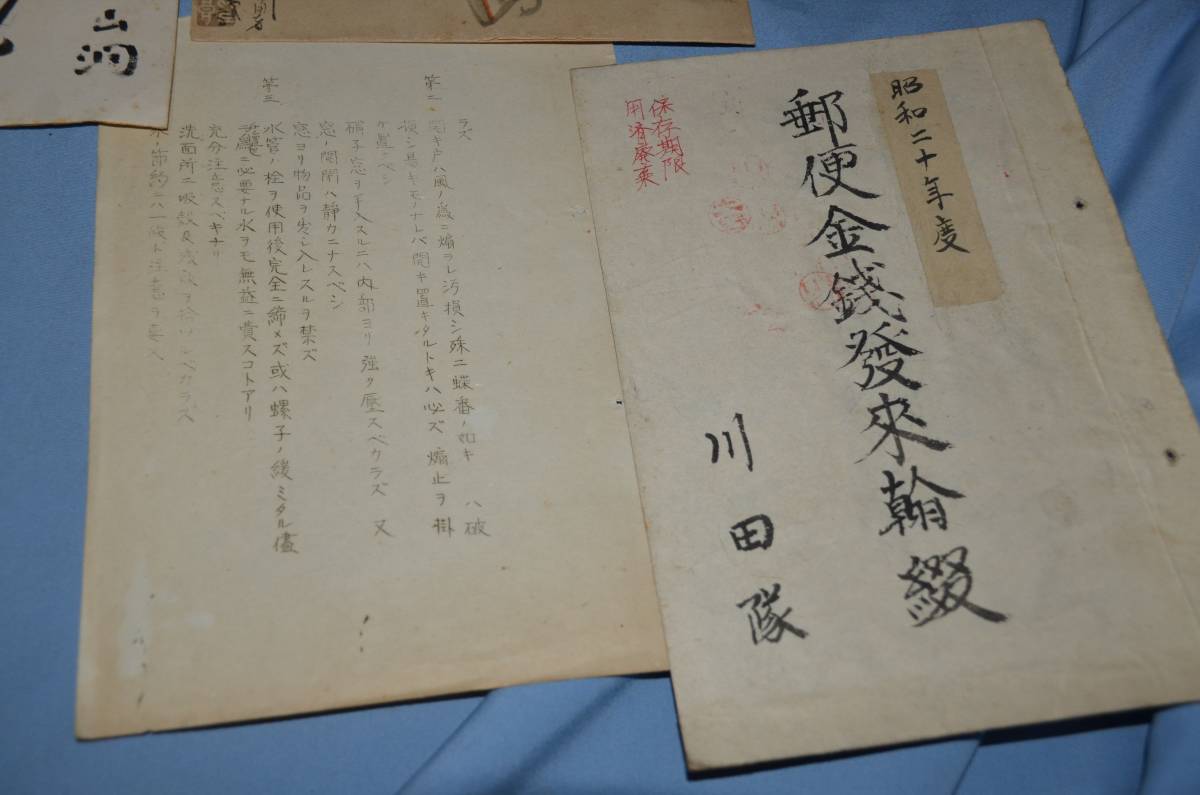 昭和二十年度
郵便金錢發來翰綴
川田隊
保存期限
用済廃棄
山洞
ラズ
第二 開キ戸ハ風ノ為ニ煽ラレ汚損シ殊ニ蝶番ノ如キ ハ破
損シ易キモノナレバ開キ置キタルトキハ必ズ煽止ヲ掛
ケ置クベシ
硝子窓ヲ手入スルニハ内部ヨリ強ク壓スベカラズ 又
窓ノ開閉ハ静カニナスベシ
窓ヨリ物品ヲ出シ入レスルヲ禁ズ
第三 水管ノ栓ヲ使用後完全ニ締メズ或ハ螺子ノ緩ミタル儘
ニ必要ナル水ヲモ無益ニ費スコトアリ
充分注意スベキナリ
洗面所ニ吸殻及 ヲ捨ツベカラズ
ノ節約ニハ一段ト注意ヲ要ス